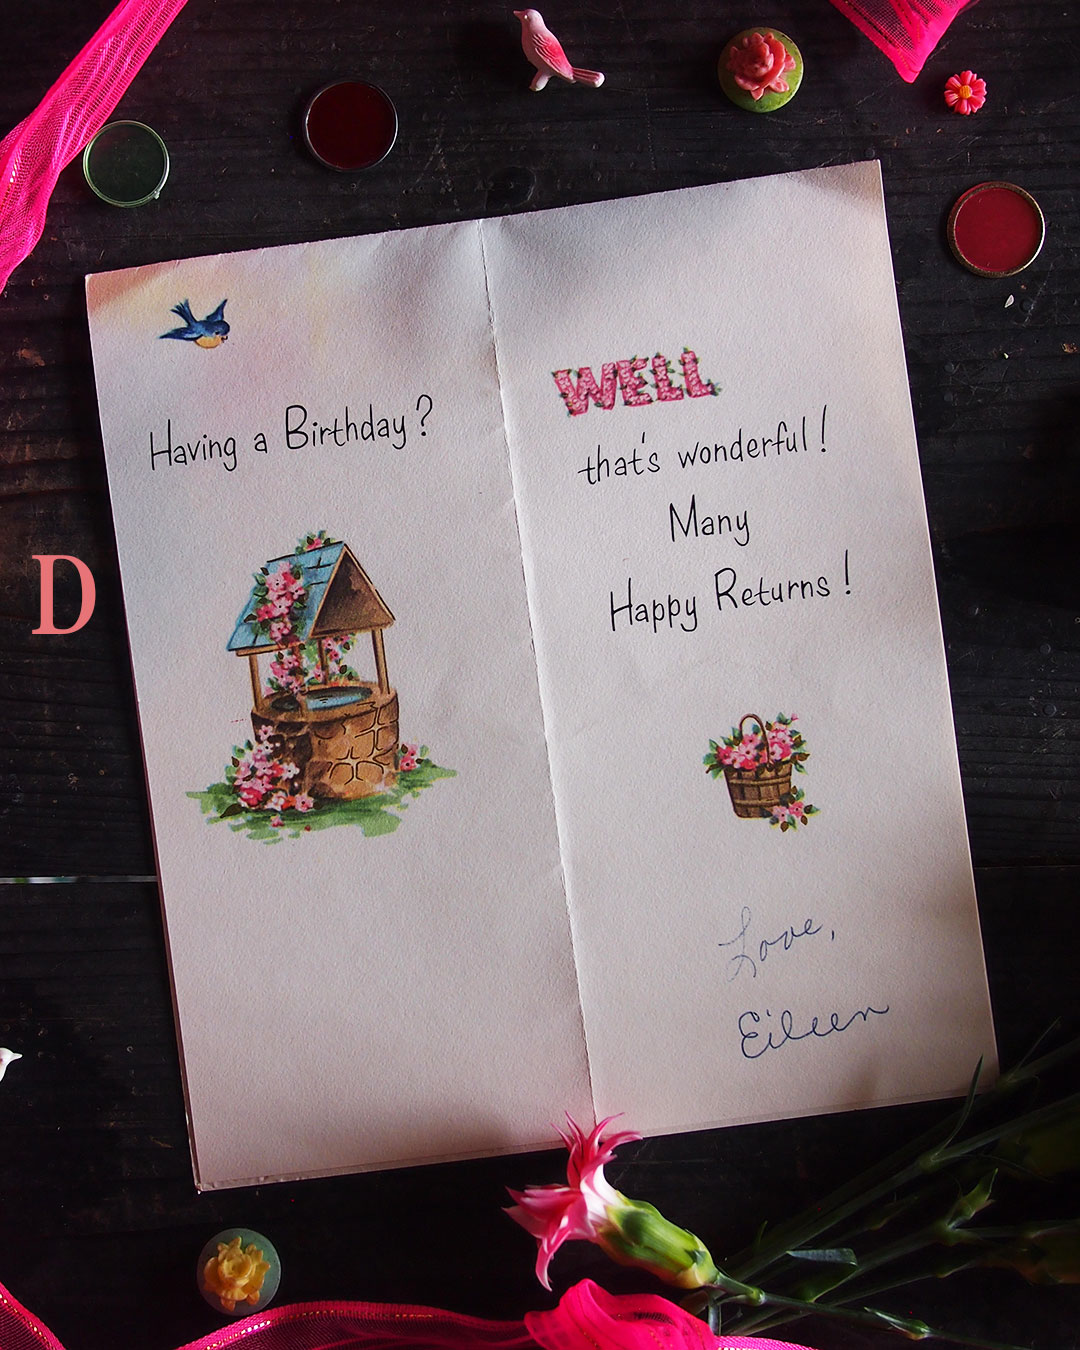 Having a Birthday?
WELL
that's wonderful!
Many
Happy Returns!
Love,
Eileen
D